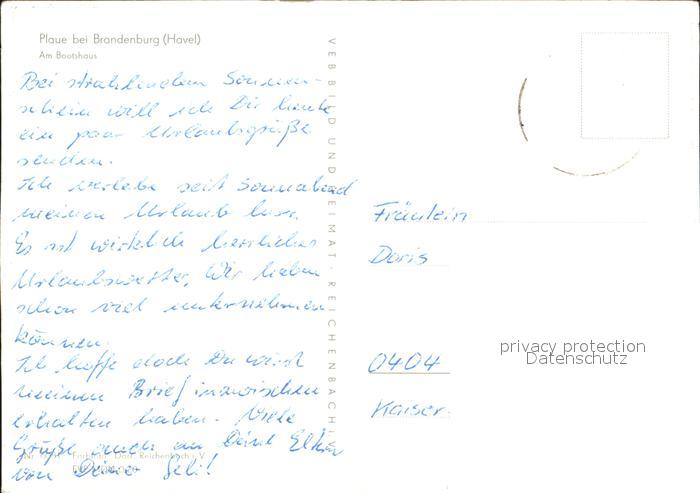 Plaue bei Brandenburg (Havel)
Am Bootshaus
Bei strahlendem Sonnen-
schein will ich Dir heute
ein paar Urlaubsgrüße
senden.
Ich verlebe seit Sonnabend
meinen Urlaub hier.
Es ist wirklich herrliches
Urlaubswetter, Wir haben
schon viel unternehmen
können.
Ich hoffe doch Du wirst
meinen Brief inzwischen
erhalten haben. Viele
Grüße auch an Deine Eltern
von Deine
VEB BILD UND HEIMAT · REICHENBACH
Reichenbach i. V.
Fräulein
Doris
0404
Kaiser
privacy protection
Datenschutz